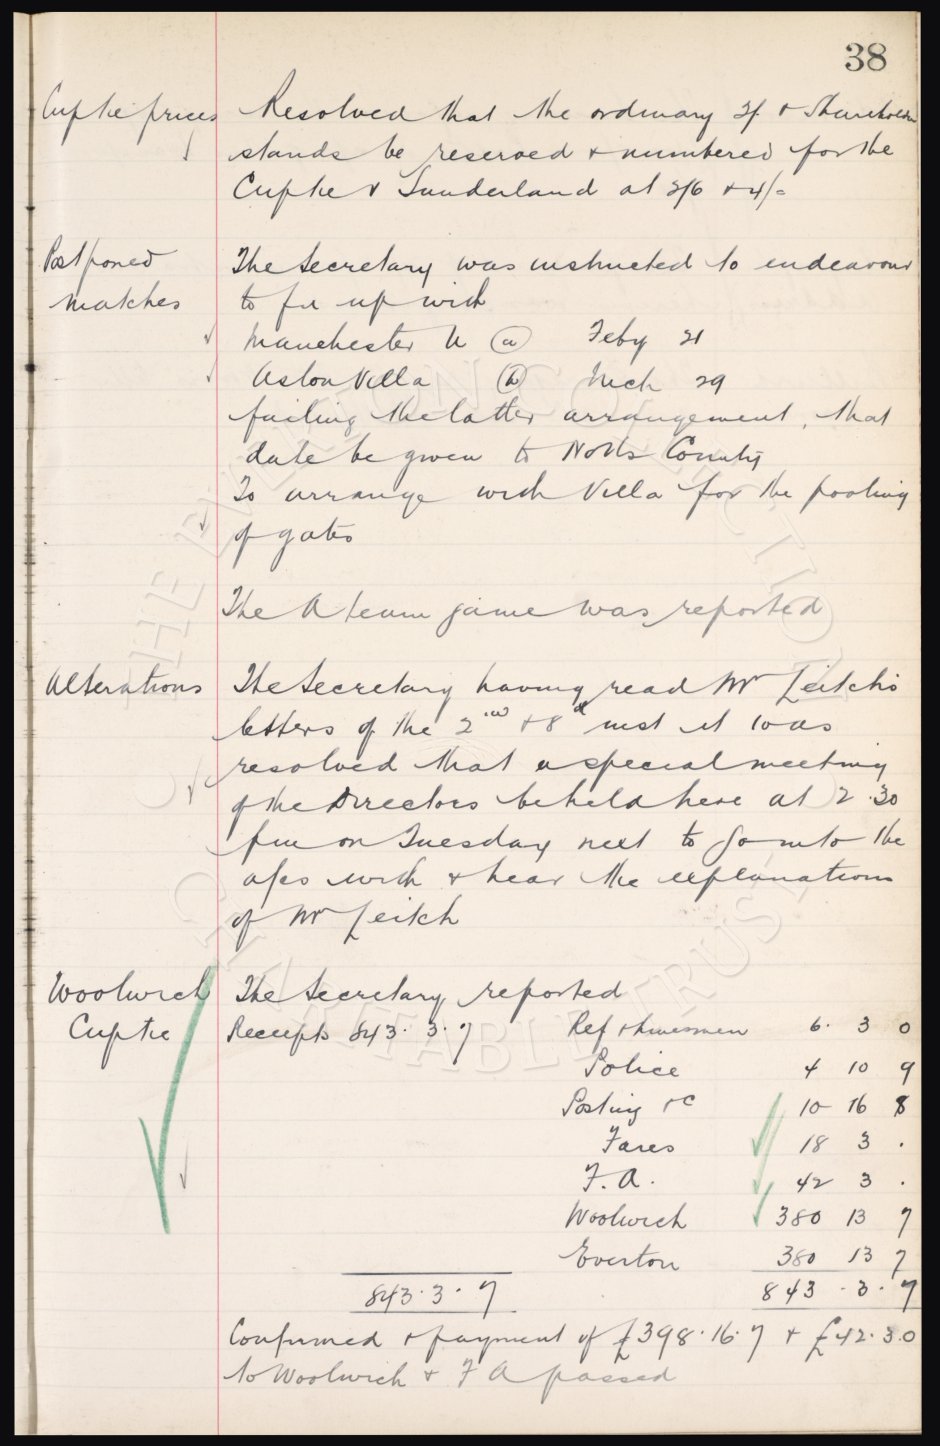 38
Cuptie prices
Resolved that the ordinary 2/- & Shareholders
stands be reserved & numbered for the
Cuptie v Sunderland at 2/6 & 4/=
Postponed
matches
The Secretary was instructed to endeavour
to fix up with
Manchester U (a) Feby 21
Aston Villa (h) Mch 29
failing the latter arrangement, that
date be given to Notts County
To arrange with Villa for the pooling
of gates
The A team game was reported
Alterations
The Secretary having read Mr Leitch's
letters of the 2nd & 8th inst it was
resolved that a special meeting
of the Directors be held here at 2.30
pm on Tuesday next to go into the
with & hear the explanations
of Mr Leitch
Woolwich
Cuptie
The Secretary reported
Receipts 843. 3. 7 Ref & linesmen 6. 3 0
Police 4 10 9
Posting &c 10 16 8
Fares 18 3 .
F. A. 42 3 .
Woolwich 380 13 7
Everton 380 13 7
843. 3. 7 843. 3. 7
Confirmed & payment of £398.16.7 & £42.3.0
to Woolwich & F A passed
THE EVERTON COLLECTION
CHARITABLE TRUST